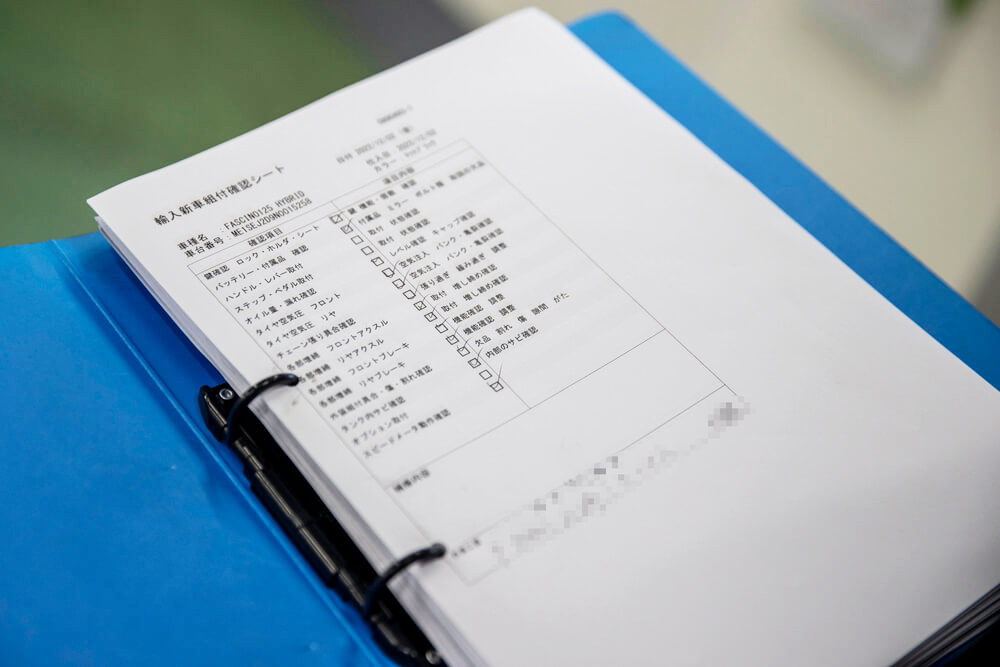 輸入新車組付確認シート
日付 2022/12/02 (金)
仕入日 2022/12/02
カラー
車種名 : FASCINO125 HYBRID
車台番号 : ME1SEJ2D9N0015258
確認項目 項目内容
鍵確認 ロック・ホルダ・シート 鍵 機能・員数 確認
バッテリー・付属品 確認 付属品 ミラー ボルト類
ハンドル・レバー取付 取付 状態確認
ステップ・ペダル取付 取付 状態確認
オイル量・漏れ確認 レベル確認 キャップ確認
タイヤ空気圧 フロント 空気注入 パンク・亀裂確認
タイヤ空気圧 リヤ 空気注入 パンク・亀裂確認
チェーン張り具合確認 張り過ぎ 緩み過ぎ 調整
各部増締 フロントアクスル 取付 増し締め確認
各部増締 リヤアクスル 取付 増し締め確認
各部増締 フロントブレーキ 機能確認 調整
各部増締 リヤブレーキ 機能確認 調整
外装組付具合・傷・割れ確認 欠品 割れ 傷 隙間 がた
タンク内サビ確認 内部のサビ確認
オプション取付
スピードメータ動作確認
補修内容